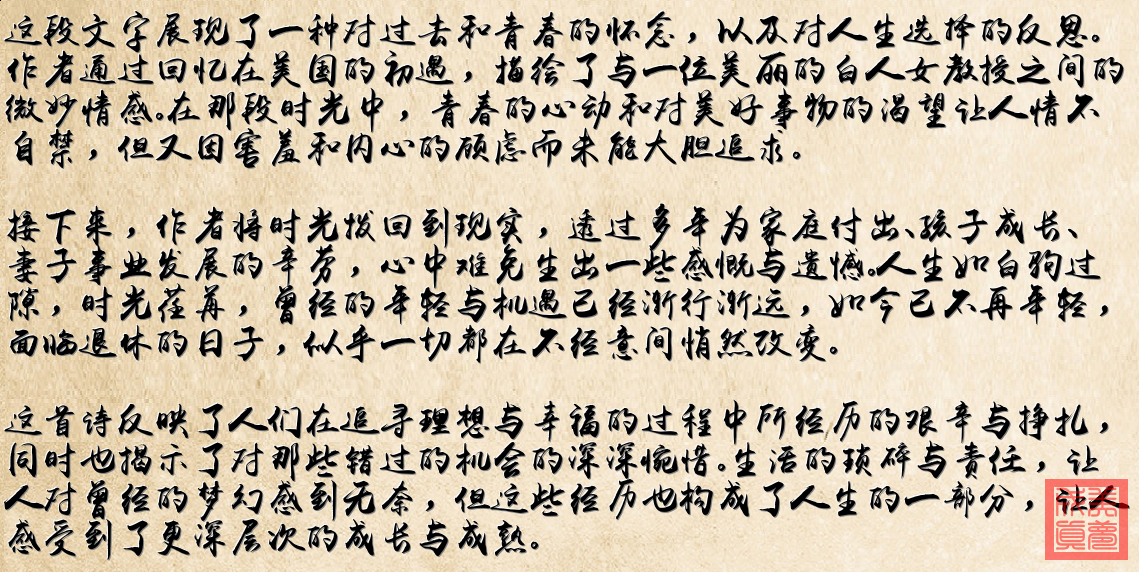 这段文字展现了一种对过去和青春的怀念，以及对人生选择的反思。
作者通过回忆在美国的初遇，描绘了与一位美丽的白人女教授之间的
微妙情感。在那段时光中，青春的心动和对美好事物的渴望让人情不
自禁，但又因害羞和内心的顾虑而未能大胆追求。
接下来，作者将时光拨回到现实，透过多年为家庭付出、孩子成长、
妻子事业发展的辛劳，心中难免生出一些感慨与遗憾。人生如白驹过
隙，时光荏苒，曾经的年轻与机遇已经渐行渐远，如今已不再年轻，
面临退休的日子，似乎一切都在不经意间悄然改变。
这首诗反映了人们在追寻理想与幸福的过程中所经历的艰辛与挣扎，
同时也揭示了对那些错过的机会的深深惋惜。生活的琐碎与责任，让
人对曾经的梦幻感到无奈，但这些经历也构成了人生的一部分，让人
感受到了更深层次的成长与成熟。